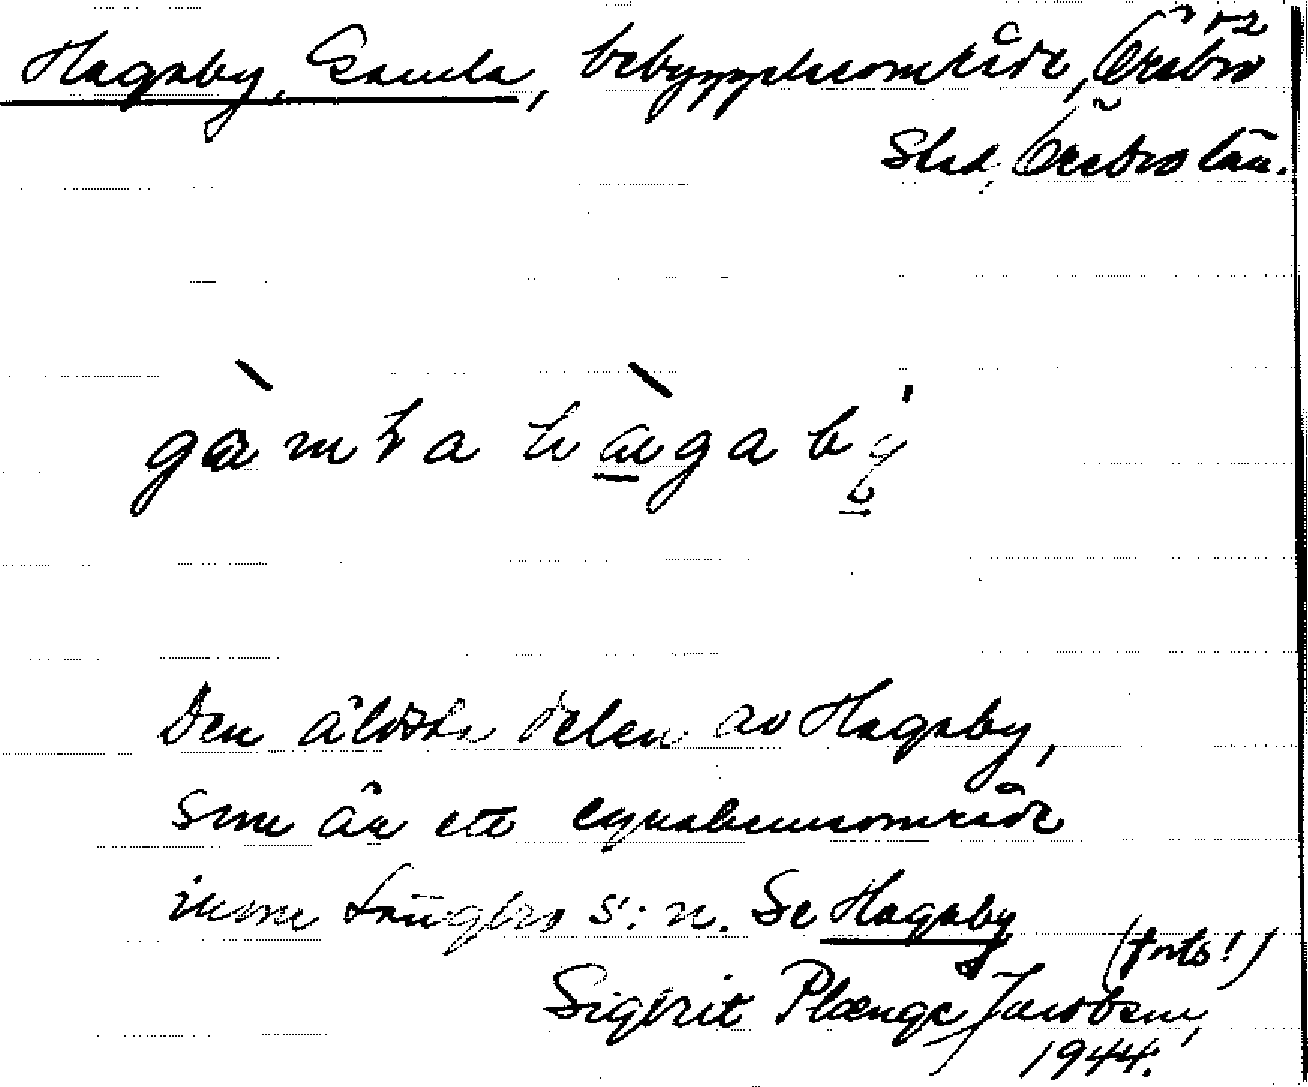 Hagaby, Gamla, bebyggelseområde, Örebro
Stad, Örebro län.
gàmla hàgabý
Den äldsta delen av Hagaby,
som är ett egnahemsområde
inom Längbro s:n. Se Hagaby
(forts!)
Sigfrit Plænge Jacobson,
1944.